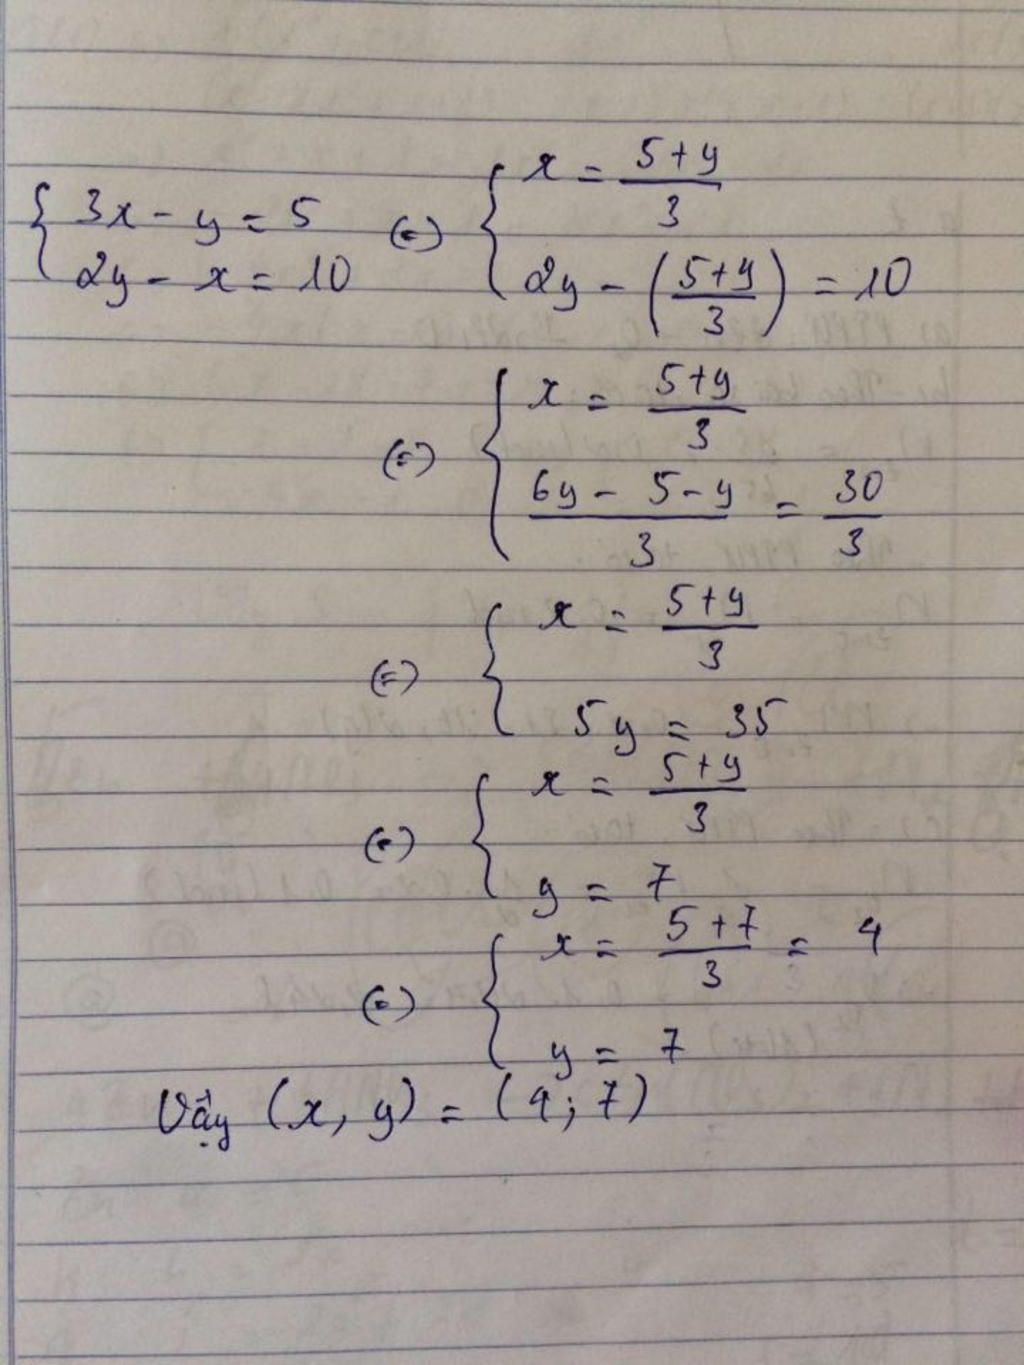 { 3x - y = 5 (=) { x = (5+y)/3
{ 2y - x = 10 { 2y - ((5+y)/3) = 10
(=) { x = (5+y)/3
{ (6y - 5 - y)/3 = 30/3
(=) { x = (5+y)/3
{ 5y = 35
(=) { x = (5+y)/3
{ y = 7
(=) { x = (5+7)/3 = 4
{ y = 7
Vậy (x, y) = (4; 7)